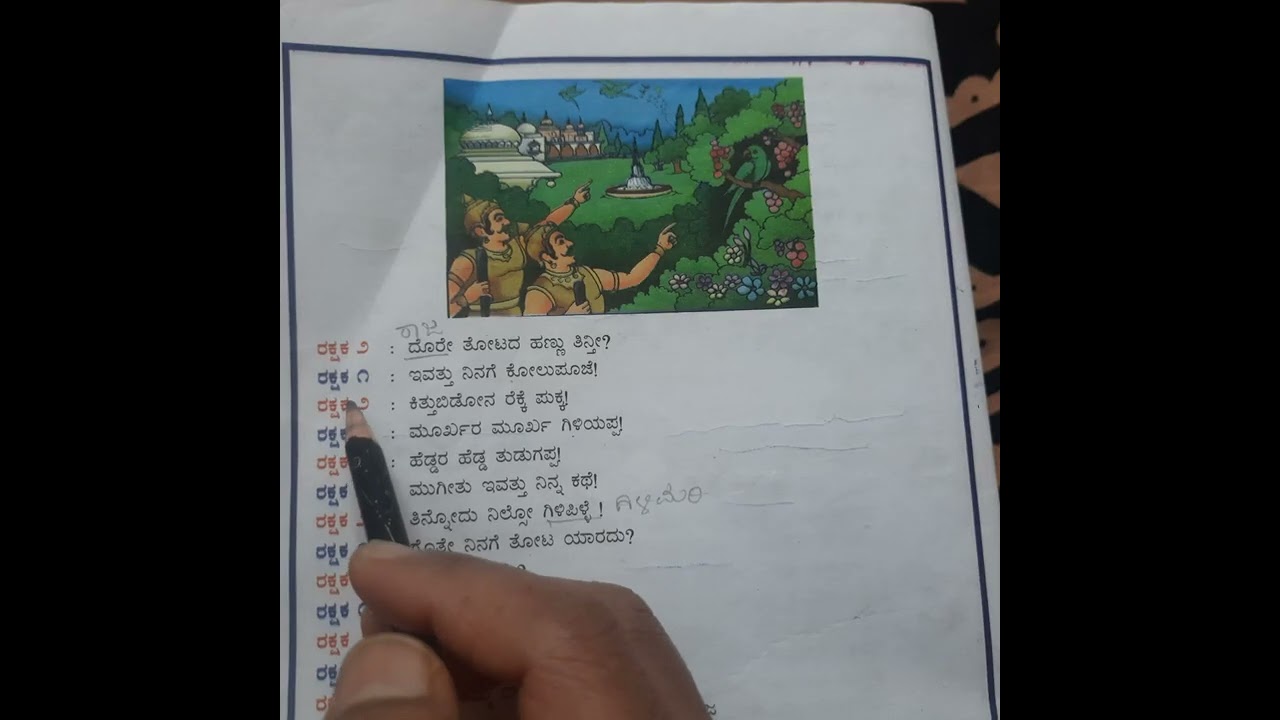 ರಾಜ
ರಕ್ಷಕ ೨ : ದೊರೇ ತೋಟದ ಹಣ್ಣು ತಿನ್ತೀ?
ರಕ್ಷಕ ೧ : ಇವತ್ತು ನಿನಗೆ ಕೋಲುಪೂಜೆ!
ರಕ್ಷಕ ೨ : ಕಿತ್ತುಬಿಡೋನ ರೆಕ್ಕೆ ಪುಕ್ಕ!
ರಕ್ಷಕ : ಮೂರ್ಖರ ಮೂರ್ಖ ಗಿಳಿಯಪ್ಪ!
ರಕ್ಷಕ : ಹೆಡ್ಡರ ಹೆಡ್ಡ ತುಡುಗಪ್ಪ!
ರಕ್ಷಕ ಮುಗೀತು ಇವತ್ತು ನಿನ್ನ ಕಥೆ!
ರಕ್ಷಕ ತಿನ್ನೋದು ನಿಲ್ಸೋ ಗಿಳಿಪಿಳ್ಳೆ ! ಗಿಳಿಮರಿ
ರಕ್ಷಕ ಗೊತ್ತೇ ನಿನಗೆ ತೋಟ ಯಾರದು?
ರಕ್ಷಕ
ರಕ್ಷಕ
ರಕ್ಷಕ
ರಕ್ಷಕ